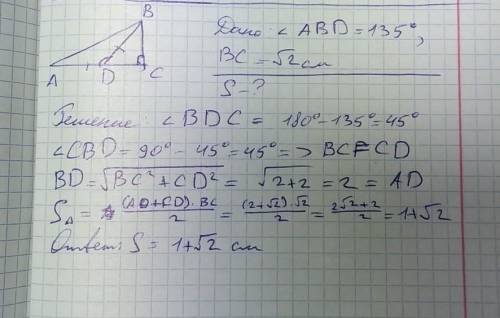 B
A D C
Дано: ∠ABD = 135°,
BC = √2 см
S - ?
Решение: ∠BDC = 180° - 135° = 45°
∠CBD = 90° - 45° = 45° => BC = CD
BD = √BC² + CD² = √2+2 = 2 = AD
S△ = (AD + CD) · BC / 2 = (2+√2) · √2 / 2 = 2√2 + 2 / 2 = 1+√2
Ответ: S = 1+√2 см